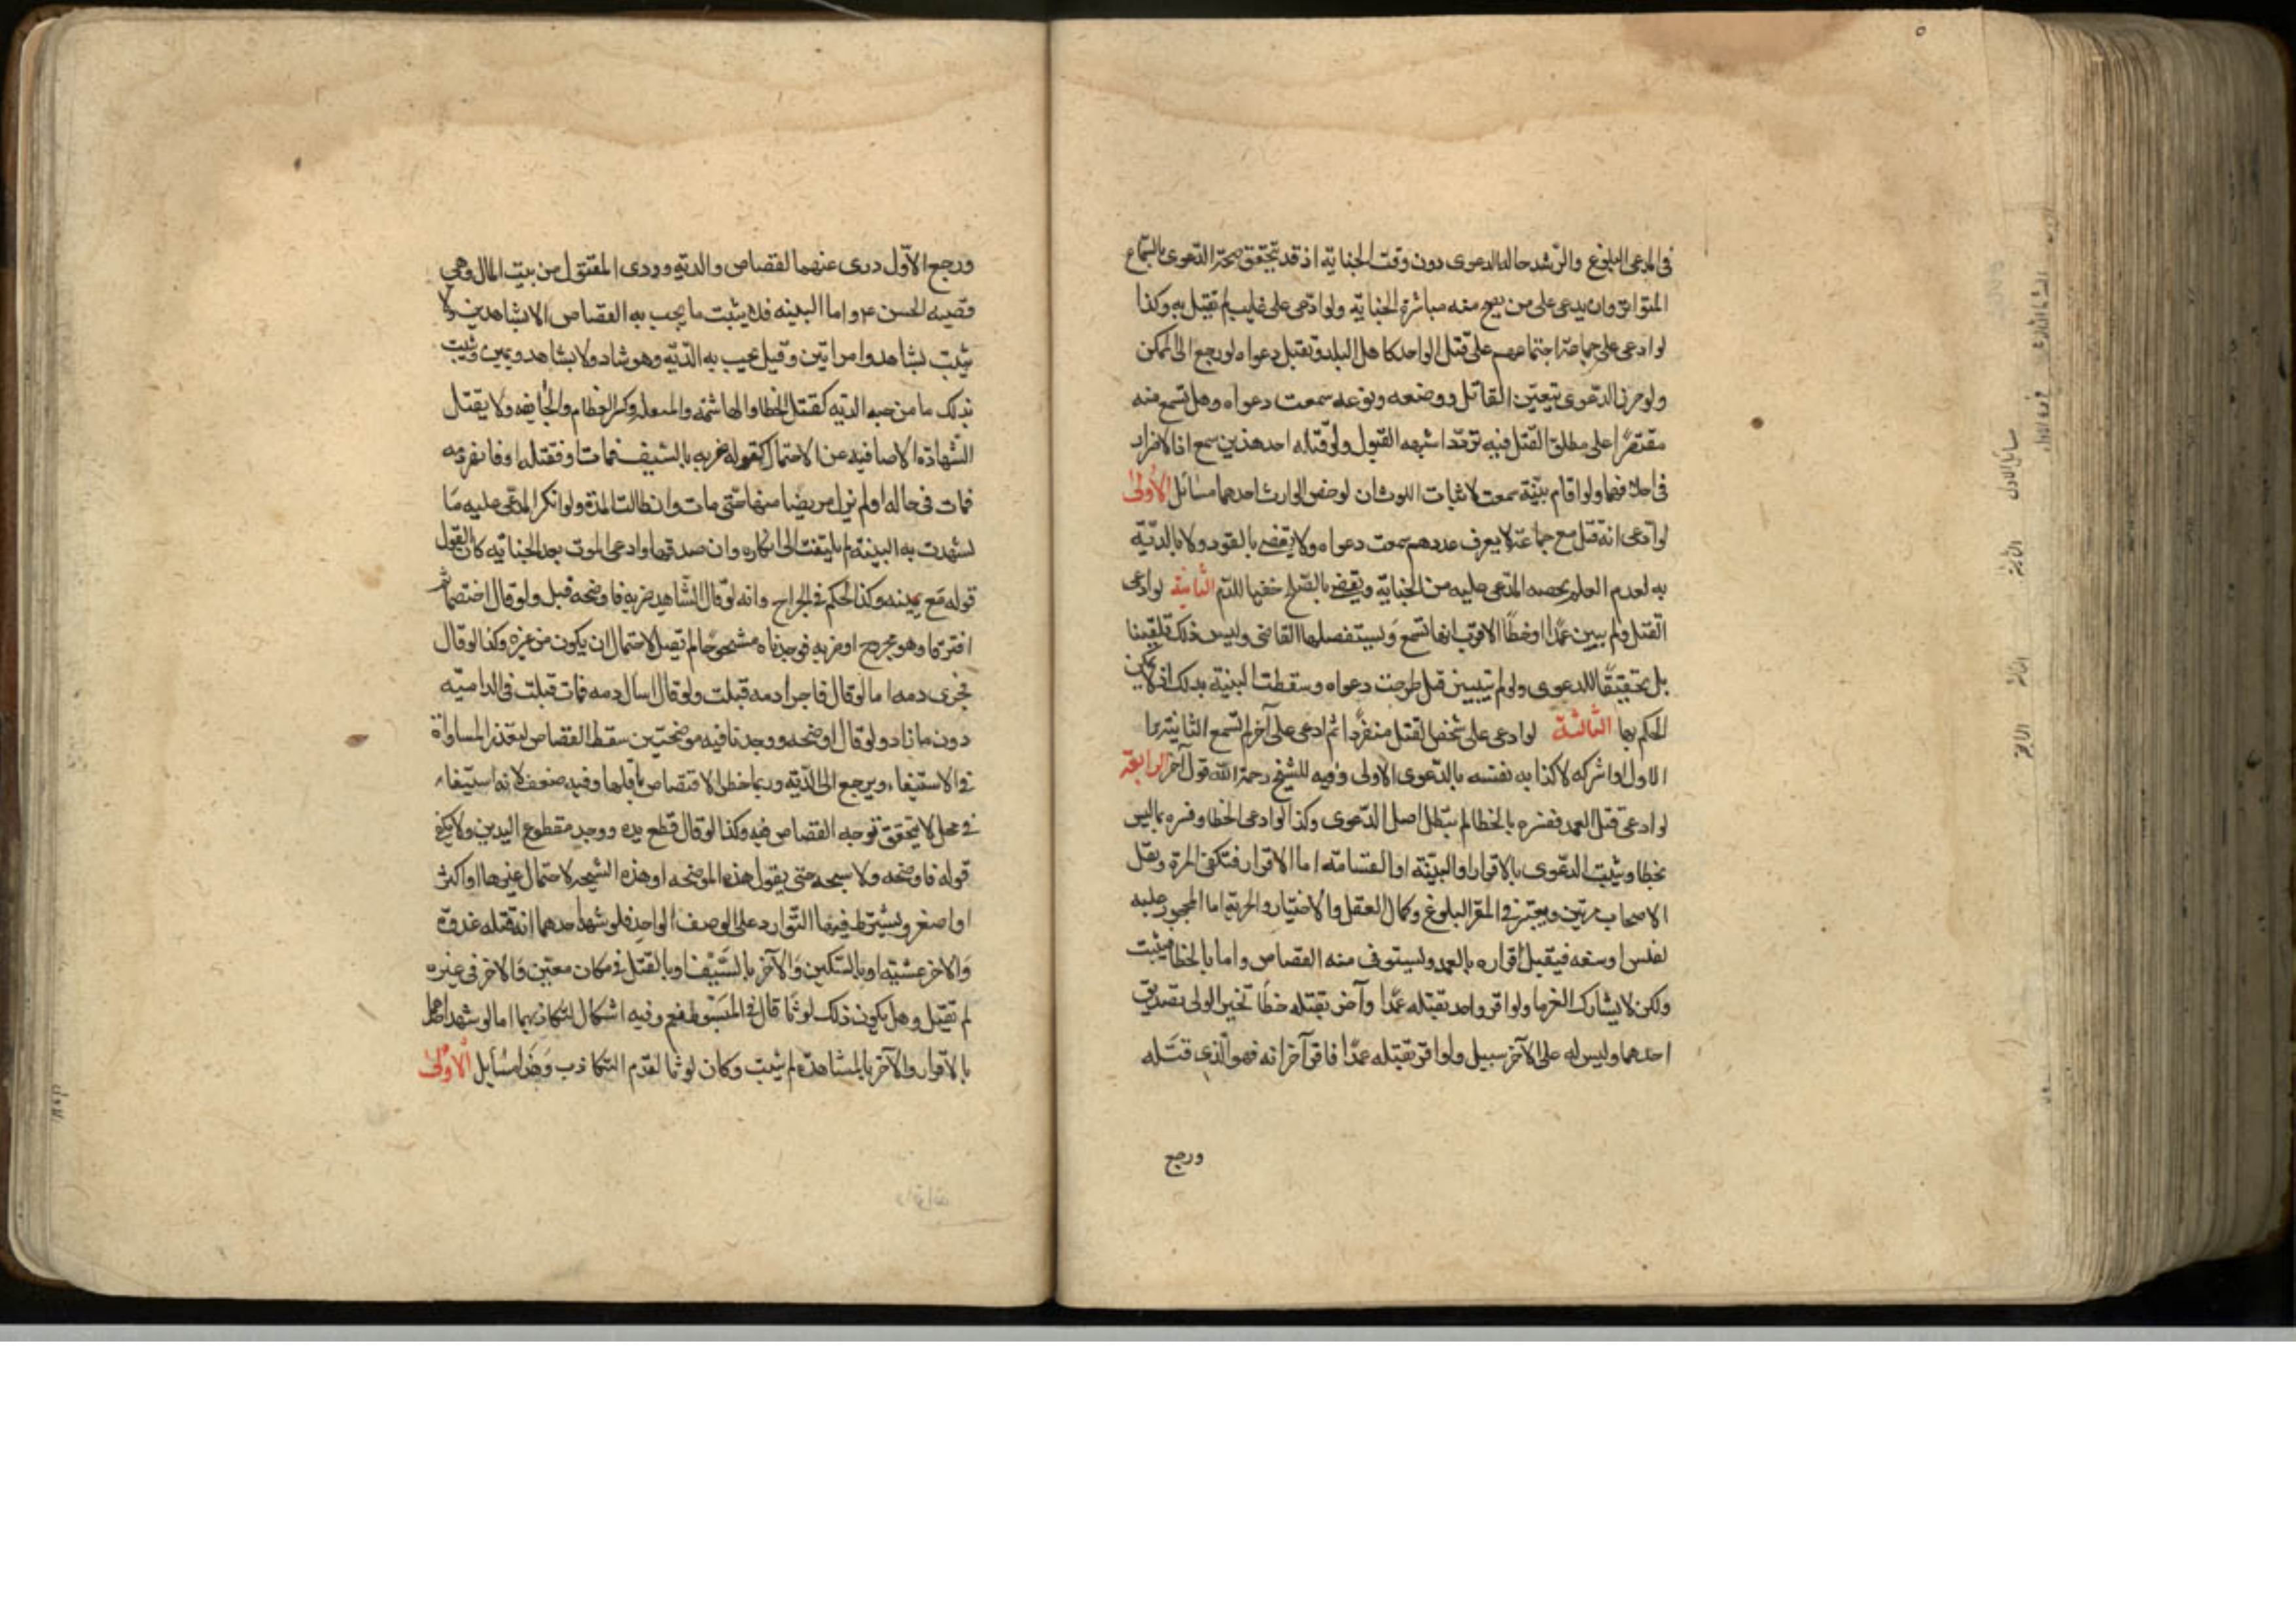 في المدعى البلوغ والرشد حاله الدعوى دون وقت الجنايه اذ قد يتحقق صحة الدعوى بالسماع
المتواتر وان يدعى على من يصح منه مباشرة الجنايه ولو ادعى على غايب لم تقبل به وكذا
لو ادعى على جماعة اجتماعهم على قتل الواحد كاهل البلد وتقبل دعواه لو رجع الى الممكن
ولو حرر الدعوى بتعيين القاتل ووصفه ونوعه سمعت دعواه وهل تسمع منه
مقتصرا على مطلق القتل فيه تردد اشبهه القبول ولو قتله احد هذين سمع اذ الاضرار
في احلافهما ولو اقام بينة سمعت لاثبات اللوث ان لو خص الوارث احدهما مسائل الاولى
لو ادعى انه قتل مع جماعة لا يعرف عددهم سمعت دعواه ولا يقضى بالقود ولا بالدية
به لعدم العلم بحصه المدعى عليه من الجنايه ويقضى بالصلح حقنا للدم الثانية لو ادعى
القتل ولم يبين عمدا او خطأ الاقرب انها تسمع ويستفصلها القاضى وليس ذلك تلقينا
بل تحقيقا للدعوى ولو لم يتبين قيل طرحت دعواه وسقطت البينة بذلك اذ لا يمكن
الحكم بها الثالثة لو ادعى على شخص القتل منفردا ثم ادعى على آخر لم تسمع الثانية برا
الاول او اشركه لاكذابه نفسه بالدعوى الاولى وفيه للشيخ رحمة الله قول آخر الرابعة
لو ادعى قتل العمد ففسره بالخطا لم تبطل اصل الدعوى وكذا لو ادعى الخطا وفسره بما ليس
بخطا ويثبت الدعوى بالاقرار او البينة او القسامه اما الاقرار فتكفى المرة وبعض
الاصحاب مرتين ويعتبر في المقر البلوغ وكمال العقل والاختيار والحرية اما المحجور عليه
لفلس او سفه فيقبل اقراره بالعمد ويستوفى منه القصاص واما بالخطا فيثبت
ولكن لا يشارك الغرما ولو اقر واحد بقتله عمدا وآخر بقتله خطأ تخير الولى بتصديق
احدهما وليس له على الآخر سبيل ولو اقر بقتله عمدا فاقر آخر انه فهو الذى قتله
ورجع
ورجع الاول درى عنهما القصاص والديه وودى المقتول من بيت المال وهى
قضيه الحسن ع واما البينه فلا يثبت ما يجب به القصاص الا بشاهدين ولا
يثبت بشاهد وامراتين وقيل يجب به الديه وهو شاد ولا بشاهد ويمين ويثبت
بذلك ما موجبه الديه كقتل الخطا والهاشمه والمنقله وكسر العظام والجايفه ولا يقبل
الشهادة الا صافيه عن الاحتمال كقوله ضربه بالسيف فمات او فقتله او فانهر دمه
فمات فى حاله او لم يزل مريضا منها حتى مات وان طالت المدة ولو انكر المدعى عليه ما
شهدت به البينة لم يلتفت الى انكاره وان صدقها وادعى الموت بعد الجنايه كان القول
قوله مع يمينه وكذا الحكم فى الجراح وانه لو قال الشاهد ضربه فاوضحه قبل ولو قال اختصما ثم
افترقا وهو مجروح او ضربه فوجدناه مشجوجا لم تقبل لاحتمال ان يكون من غيره وكذا لو قال
فجرى دمه اما لو قال فاجرا دمه قبلت ولو قال اسال دمه فمات قبلت فى الداميه
دون ما زاد ولو قال اوضحه ووجدنا فيه موضحتين سقط القصاص لتعذر المساواة
فى الاستيفاء ويرجع الى الديه وربما خطر الاقتصاص باقلها وفيه ضعف لانه استيفاء
فى محل لا يتحقق توجه القصاص فيه وكذا لو قال قطع يده ووجد مقطوع اليدين ولا يكفى
قوله فاوضحه ولا شجه حتى يقول هذه الموضحه او هذه الشجه لاحتمال غيرها او اكثر
او اصغر ويشترط فيهما التوارد على الوصف الواحد فلو شهد احدهما انه قتله غدوة
والاخر عشيه او بالسكين والآخر بالسيف او بالقتل فى مكان معين والاخر فى غيره
لم تقبل وهل يكون ذلك لوثا قال فى المبسوط نعم وفيه اشكال لتكاذبهما اما لو شهد احدهما
بالاقرار والآخر بالمشاهدة لم يثبت وكان لوثا لعدم التكاذب وهذا مسايل الاولى